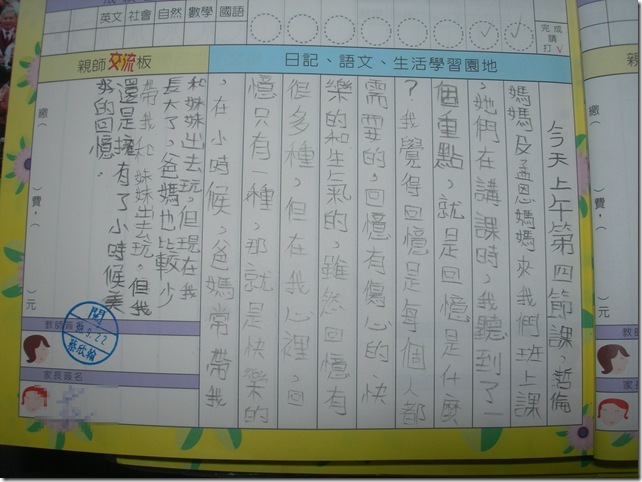 英文 社會 自然 數學 國語
完成請打√
親師交流板
日記、語文、生活學習園地
今天上午第四節課，哲倫
媽媽及孟恩媽媽來我們班上課
，她們在講課時，我聽到了一
個重點，就是回憶是什麼
？我覺得回憶是每個人都
需要的，回憶有傷心的、快
樂的和生氣的，雖然回憶有
很多種，但在我心裡，回
憶只有一種，那就是快樂的
，在小時候，爸媽常帶我
和妹妹出去玩，但現在我
長大了，爸媽也比較少
帶我和妹妹出去玩。但我
還是擁有了小時候美
好的回憶。
繳（
）費，（
）元
教師簽名
閱
99.9.22
蔡欣翰
家長簽名
繳（
）費，（
）元